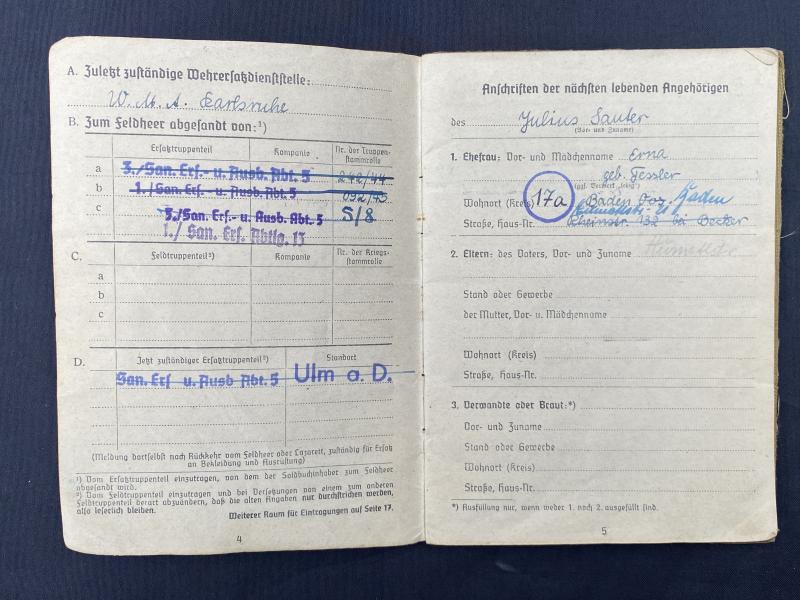 A. Zuletzt zuständige Wehrersatzdienststelle:
W. M. A. Karlsruhe
B. Zum Feldheer abgesandt von:¹)
Ersatztruppenteil Kompanie Nr. der Truppen-
stammrolle
a 3./San. Ers.- u. Ausb. Abt. 5 242/44
b 1./San. Ers.- u. Ausb. Abt. 5 092/45
c 5./San. Ers.- u. Ausb. Abt. 5 S/8
1./ San. Ers. Abtlg. 13
C. Feldtruppenteil²) Kompanie Nr. der Kriegs-
stammrolle
a
b
c
D. Jetzt zuständiger Ersatztruppenteil²) Standort
San. Ers u. Ausb Abt. 5 Ulm a. D.
(Meldung dortselbst nach Rückkehr vom Feldheer oder Lazarett, zuständig für Ersatz
an Bekleidung und Ausrüstung)
¹) Vom Ersatztruppenteil einzutragen, von dem der Soldbuchinhaber zum Feldheer
abgesandt wird.
²) Vom Feldtruppenteil einzutragen und bei Versetzungen von einem zum anderen
Feldtruppenteil derart abzuändern, daß die alten Angaben nur durchstrichen werden,
also leserlich bleiben.
Weiterer Raum für Eintragungen auf Seite 17.
4
Anschriften der nächsten lebenden Angehörigen
des Julius Sauter
(Vor- und Zuname)
1. Ehefrau: Vor- und Mädchenname Erna
geb. Fessler
(ggf. Vermerk „ledig")
Wohnort (Kreis) 17a Baden Baden
Straße, Haus-Nr. Rheinstr. 132 bei Becker
2. Eltern: des Vaters, Vor- und Zuname
Stand oder Gewerbe
der Mutter, Vor- u. Mädchenname
Wohnort (Kreis)
Straße, Haus-Nr.
3. Verwandte oder Braut:*)
Vor- und Zuname
Stand oder Gewerbe
Wohnort (Kreis)
Straße, Haus-Nr.
*) Ausfüllung nur, wenn weder 1. noch 2. ausgefüllt sind.
5